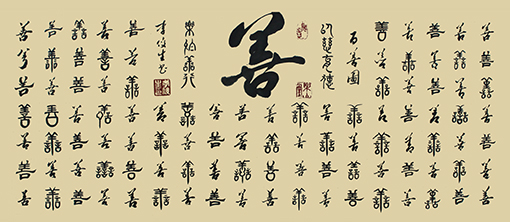 善善善善善善善
善善善善善善善
善善善善善善善
善善善善善善善
善善善善善善善
百善圖
善
善行
善善善善善善善
善善善善善善善
善善善善善善善
善善善善善善善
善善善善善善善
善善善善
善善善善
善善善善
善善善善
善善善善
善善善善
善善善善
善善善善